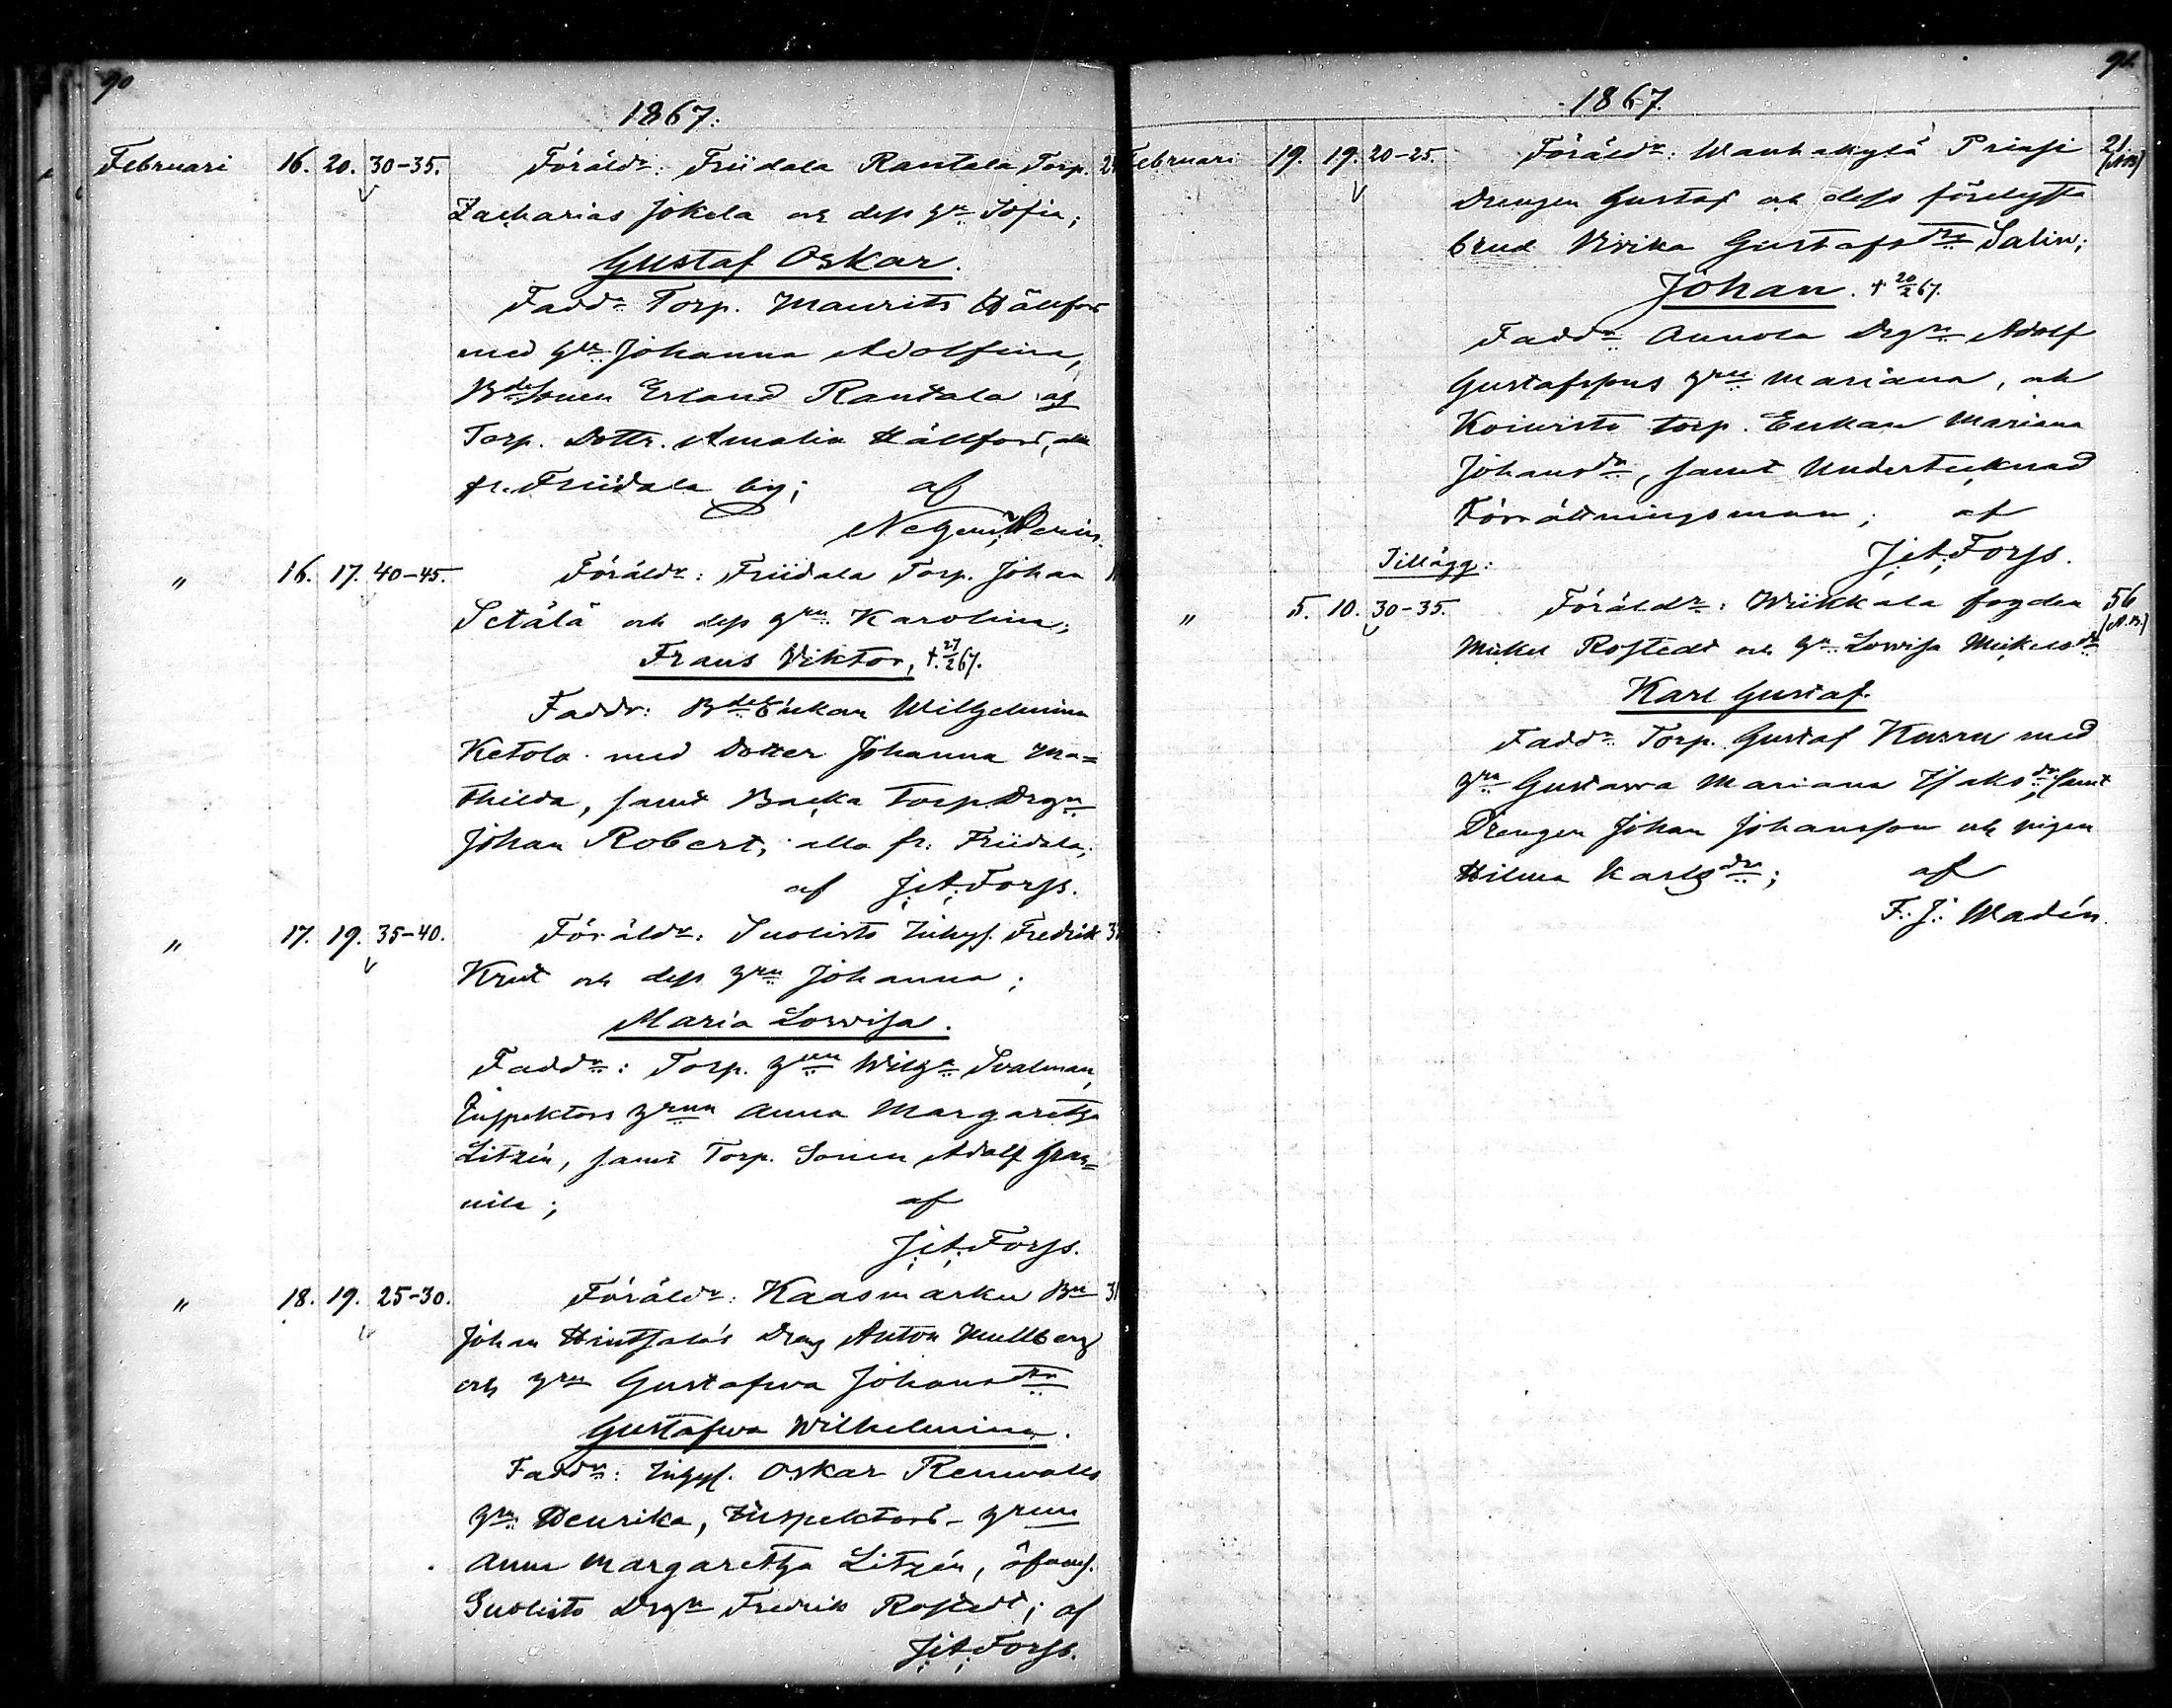 90
1867.
Februari 16. 20. 30-35. Föräldr: Friidala Rantala Torp.
Zacharias Jokela och dess hu Sofia;
Gustaf Oskar.
Faddr Torp. Maurits Hällfors
med hu Johanna Adolfina,
Bdesonen Erland Rantala og
Torp. Dottr. Amalia Hällfors, alla
fr. Friidala by; af
" 16. 17. 40-45. Föräldr: Friidala Torp. Johan
Setälä och dess hru Karolina;
Frans Viktor, †. 27/2 67.
Faddr: Bde Enkan Wilhelmina
Ketola med Dotter Johanna Ma=
thilda, samt Backa Torp. Drgn
Johan Robert, alla fr. Friidala;
af J. A. Forss.
" 17. 19. 35-40. Föräldr: Suolisto Inhys. Fredrik
Krut och dess hru Johanna;
Maria Lovvisa.
Faddr: Torp. hrun Wilha Svalman,
Inspektors hrun Anna Margaretha
Litzén, samt Torp. Sonen Adolf Gran=
nila; af
J. A. Forss.
" 18. 19. 25-30. Föräldr: Kaasmarku Bn 31
Johan Hintsala's Dräng Anton Mullberg
och hru Gustafwa Johansdtr
Gustafwa Wilhelmina.
Faddr: Inhys. Oskar Renwalls
hru Henrika, Inspektors- hrun
Anna Margaretha Litzén,
Suolisto Drgn Fredrik Rostedt; af
J. A. Forss.
91
1867.
Februari 19. 19. 20-25. Föräldr: Wanhakylä Prinsi 21.
Drengen Gustaf och dess förelofta
brud Wivika Gustafsdtr Salin;
Johan. † 20/2 67.
Faddr Annola Drgn Adolf
Gustafssons hru Mariana, och
Koivisto torp. Enkan Mariana
Johansdr, samt Undertecknad
Förrättningsman; af
J. A. Forss.
Tillägg:
" 5. 10. 30-35. Föräldr: Wiikkala fogden 56
Mickel Rostedt och hu Lovisa Mickelsdr
Karl Gustaf.
Faddr Torp. Gustaf Kurru med
hru Gustawa Mariana Isaksdr, samt
Drengen Johan Johansson och pigan
Hilma Karlsdr; af
F. J. Wadén.